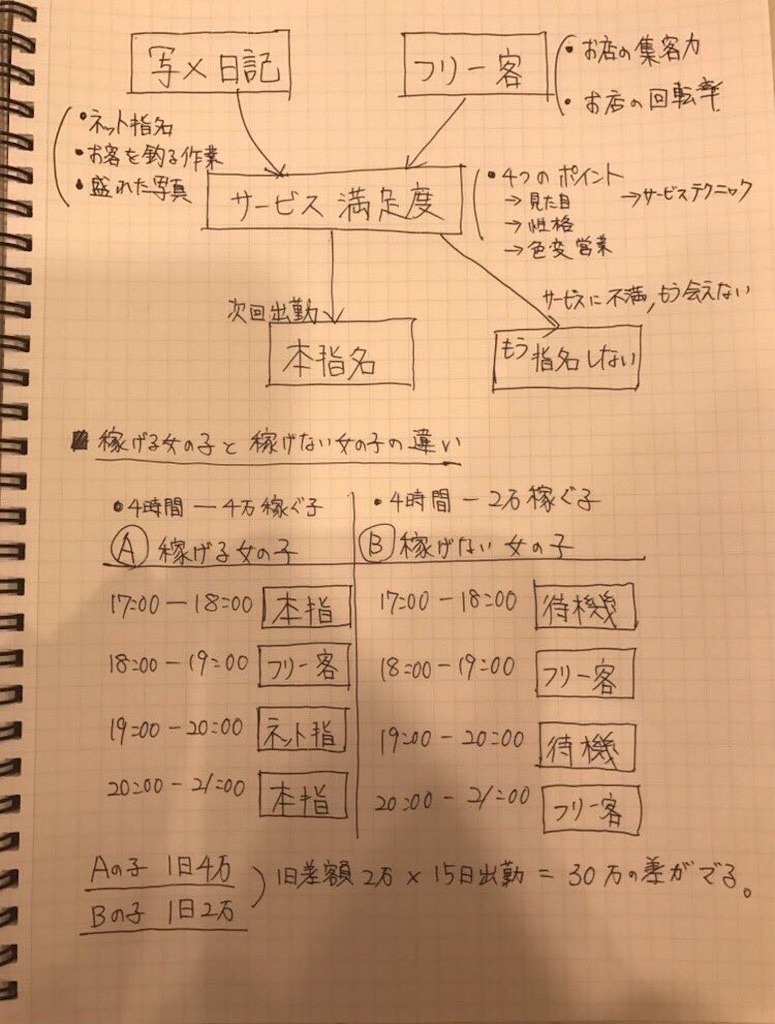 写メ日記
フリー客
・お店の集客力
・お店の回転率
・ネット指名
・お客を釣る作業
・盛れた写真
サービス満足度
・4つのポイント
→見た目
→性格
→色恋営業
→サービステクニック
次回出勤
サービスに不満,もう会えない
本指名
もう指名しない
■ 稼げる女の子と稼げない女の子の違い
・4時間ー4万稼ぐ子
Ⓐ稼げる女の子
17:00-18:00 本指
18:00-19:00 フリー客
19:00-20:00 ネット指
20:00-21:00 本指
・4時間-2万稼ぐ子
Ⓑ稼げない女の子
17:00-18:00 待機
18:00-19:00 フリー客
19:00-20:00 待機
20:00-21:00 フリー客
Aの子 1日4万
Bの子 1日2万
1日差額2万×15日出勤=30万の差がでる。